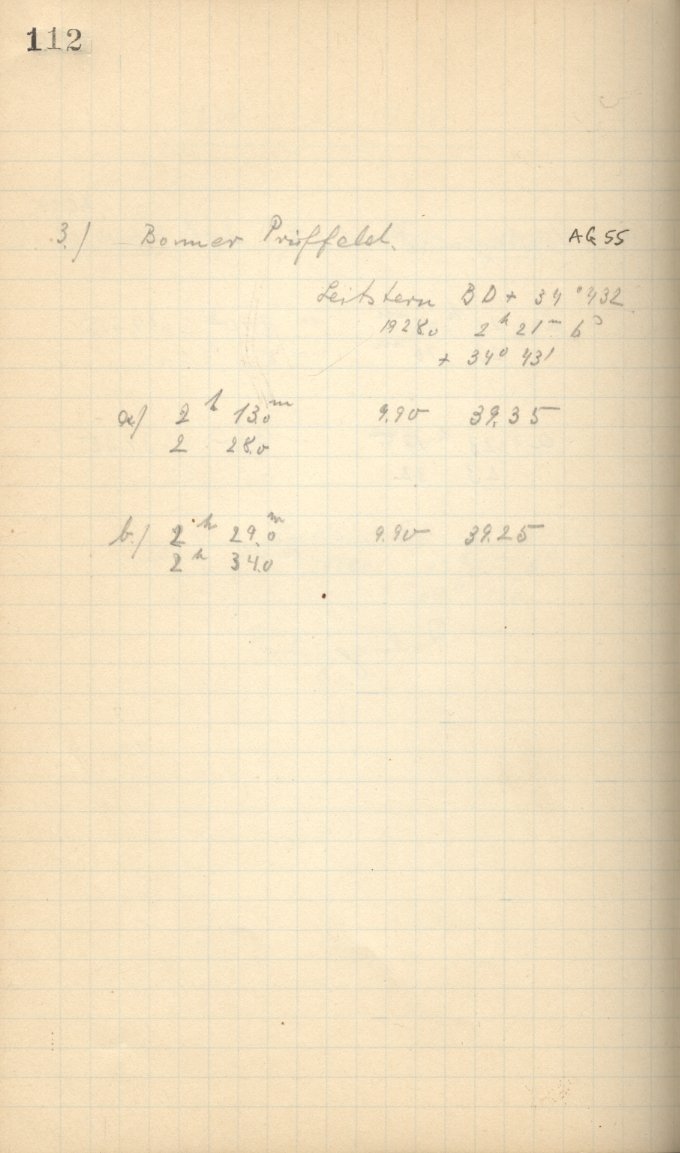 112
3.) Bonner Prüffeld. AG 55
Leitstern BD + 34° 432
1928.0 2ʰ 21ᵐ 6ˢ
+ 34° 431
a) 2ʰ 13.0ᵐ 9.90 39.35
2 28.0
b.) 2ʰ 29.0ᵐ 9.90 39.25
2ʰ 34.0